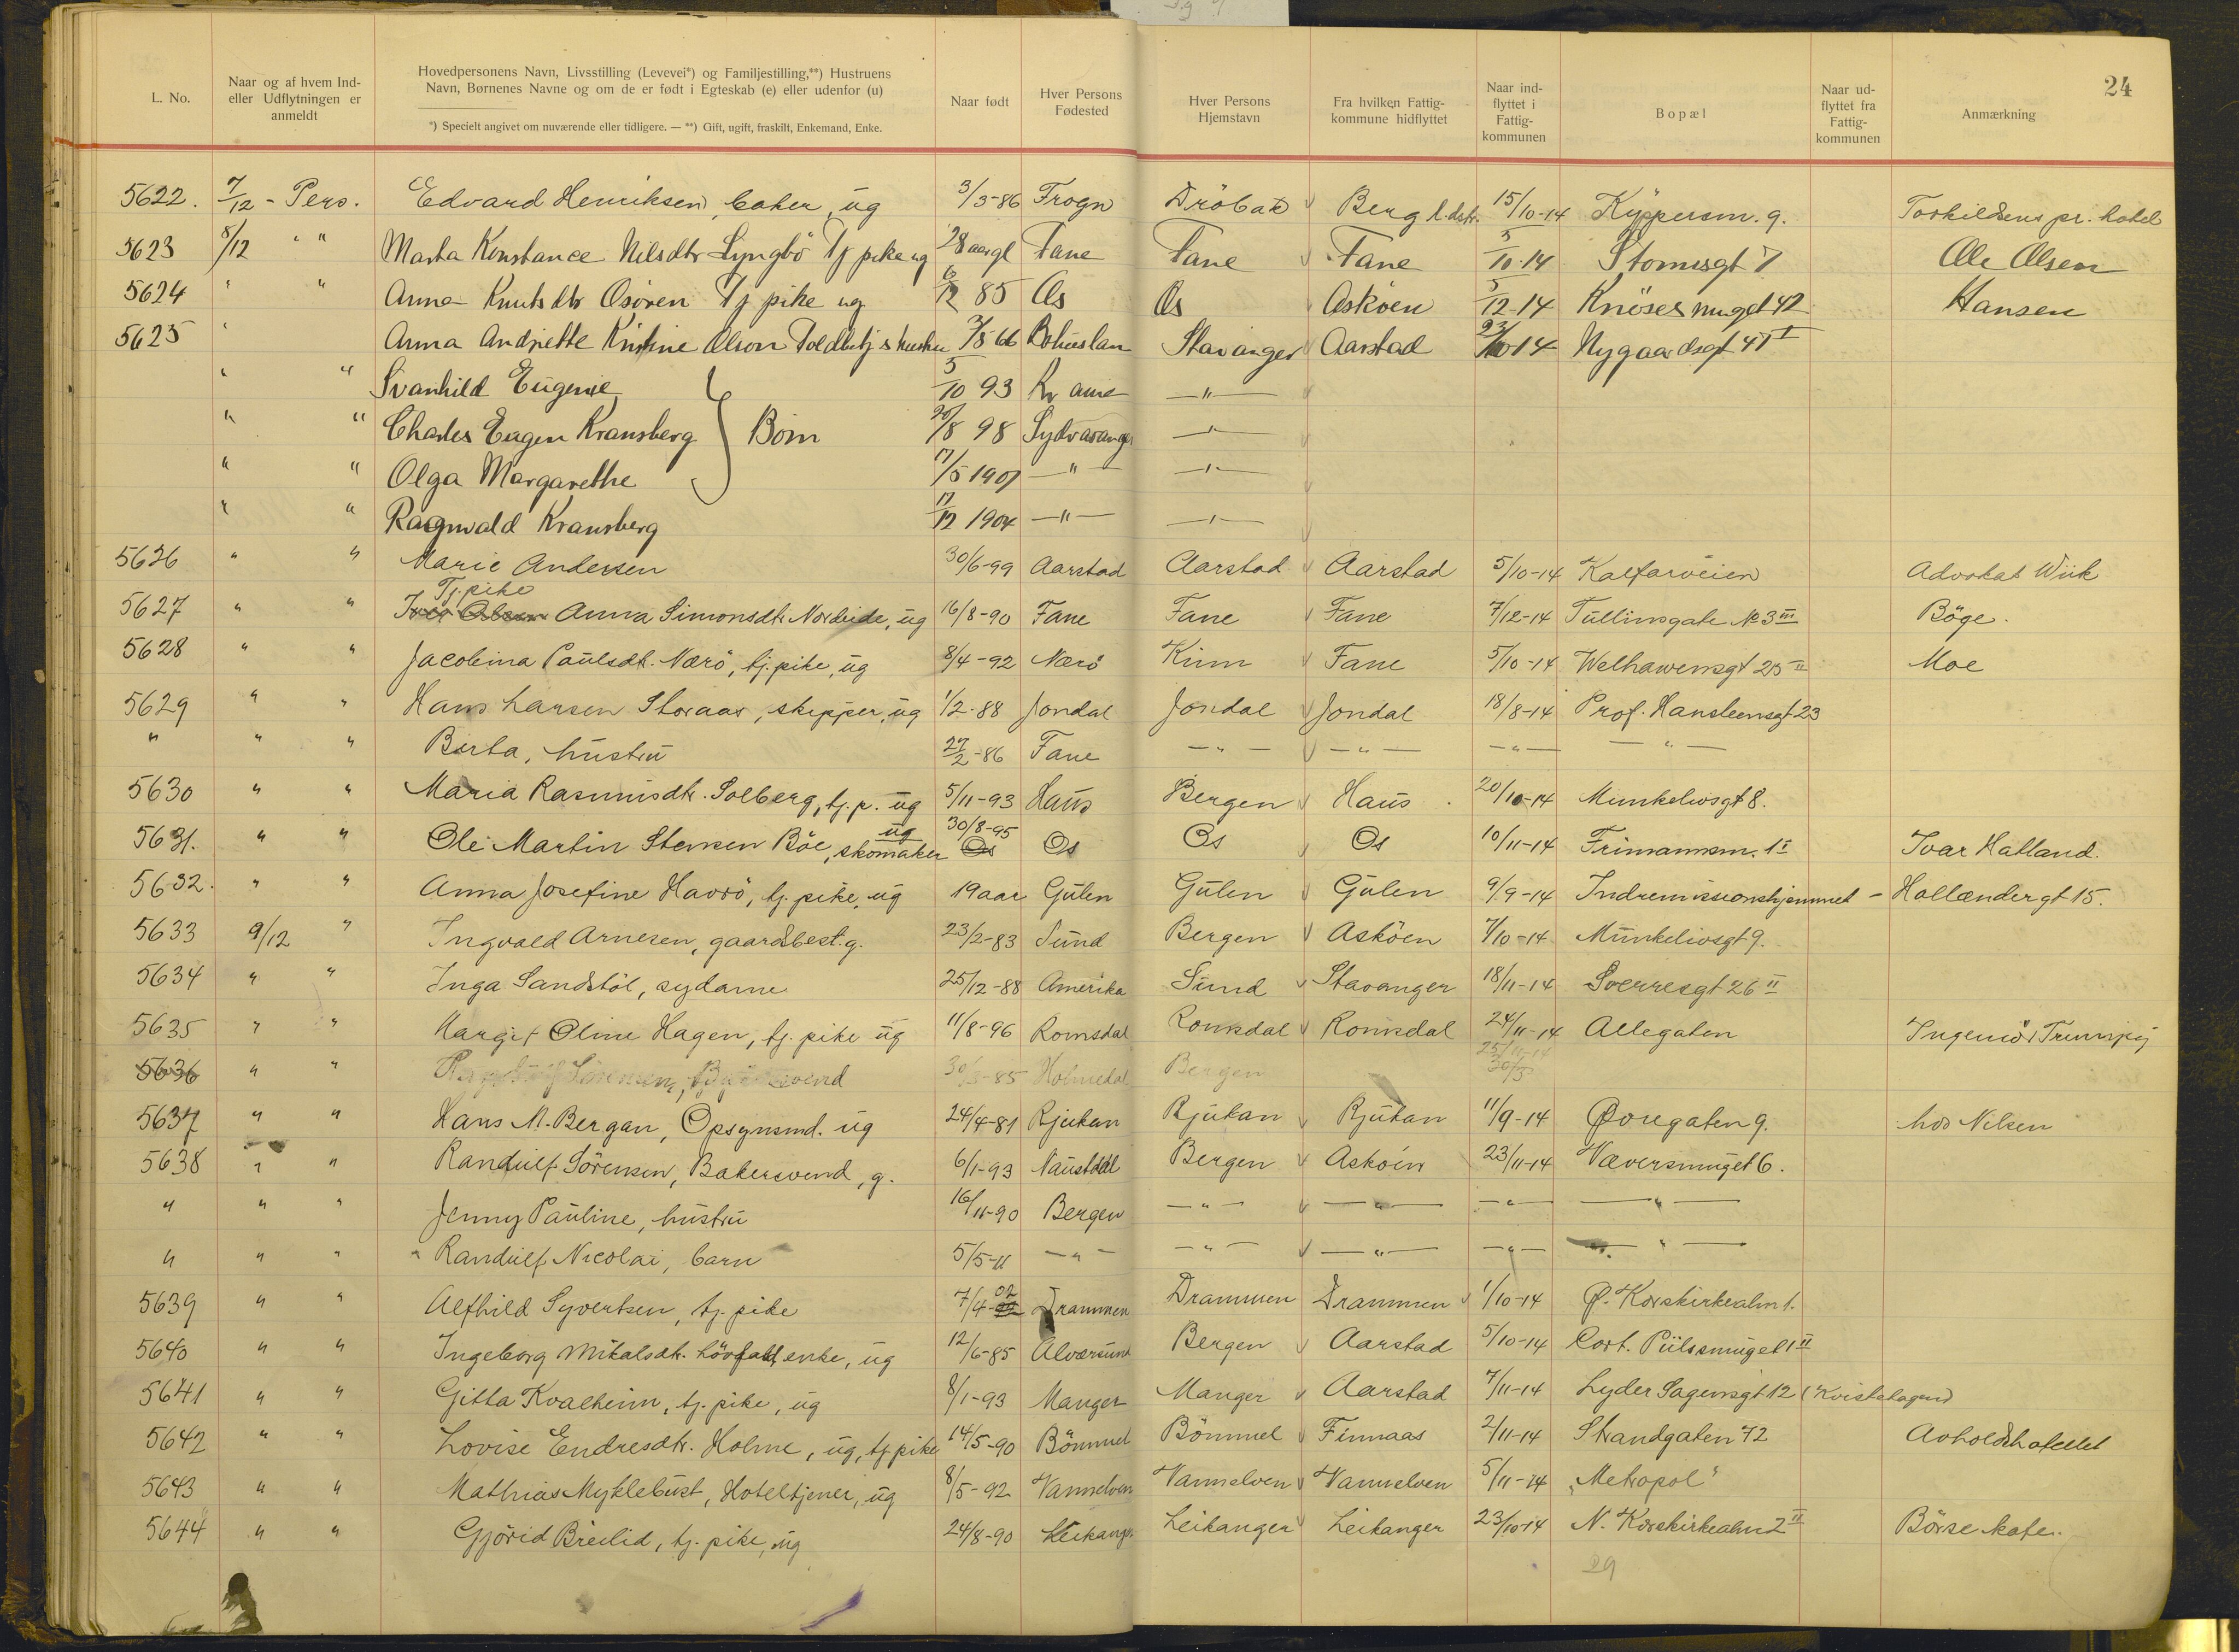 24
L. No.
Naar og af hvem Ind- eller Udflytningen er anmeldt
Hovedpersonens Navn, Livsstilling (Levevei*) og Familjestilling,**) Hustruens Navn, Børnenes Navne og om de er født i Egteskab (e) eller udenfor (u)
*) Specielt angivet om nuværende eller tidligere. — **) Gift, ugift, fraskilt, Enkemand, Enke.
Naar født
Hver Persons Fødested
Hver Persons Hjemstavn
Fra hvilken Fattig- kommune hidflyttet
Naar ind- flyttet i Fattig- kommunen
Bopæl
Naar ud- flyttet fra Fattig- kommunen
Anmærkning
5622. 7/12 - Pers. Edvard Henriksen, baker, ug 3/3-86 Frogn Dröbak Berg l.dstr. 15/10-14 Kyppersm. 9. Torkildsens pr. hotel
5623 8/12 " " Marta Konstance Nilsdtr Lyngbö Tj pike ug 28 aargl Fane Fane Fane 5/10-14 Stormsgt 7 Ole Olsen
5624 " " Anna Knutsdtr Osören Tj pike ug 6/12 85 Os Os Asköen 5/12-14 Knösesmuget 42 Hansen
5625 " Anna Andriette Kristine Olson Toldbetj s hustru 3/8 66 Bohuslan Stavanger Aarstad 23/10 14 Nygaardsgt 41 I
" " Svanhild Eugenie 5/10 93 Kr ania — " —
" " Charles Eugen Kransberg } Börn 20/8 98 Sydvaranger — " —
" " Olga Margarethe 17/5 1901 — " — — " —
" " Ragnvald Kransberg 17/12 1904 — " — — " —
5626 " " Marie Andersen 30/6-99 Aarstad Aarstad Aarstad 5/10-14 Kalfarveien Advokat Wiik
Tj. pike
5627 " " Anna Simonsdtr Nordeide, ug 16/8-90 Fane Fane Fane 7/12-14 Tullinsgate No 3 III Böge.
5628 " " Jacobina Paulsdt. Nærö, tj. pike, ug 8/4-92 Nærö Kinn Fane 5/10-14 Welhavensgt 25 II Moe
5629 " " Hans Larsen Storaas, skipper, ug 1/2-88 Jondal Jondal Jondal 18/8-14 Prof. Hansteensgt 23
" " " Berta, hustru 27/2-86 Fane — " — — " — — " — — " —
5630 " " Maria Rasmusdtr. Solberg, tj. p. ug 5/11-93 Haus Bergen Haus 20/10-14 Munkelivsgt 8.
5631. " " Ole Martin Stensen Böe, skomaker ug 30/8-95 Os Os Os 10/11-14 Frimannsm. 1 I Ivar Hatland.
5632. " " Anna Josefine Havrö, tj. pike, ug 19 aar Gulen Gulen Gulen 9/9-14 Indremissionshjemmet - Hollændergt 15.
5633 9/12 " Ingvald Arnesen, gaardsbest. g. 23/2-83 Sund Bergen Asköen 7/10-14 Munkelivsgt 9.
5634 " " Inga Sandstöl, sydame 25/12-88 Amerika Sund Stavanger 18/11-14 Sverresgt 26 II
5635 " " Margit Oline Hagen, tj. pike ug 11/8-96 Romsdal Romsdal Romsdal 24/11-14 Allegaten Ingeniör Trumpy
5636 " " Holmedal Bergen
5637 " " Hans M. Bergan, Opsynsmd. ug 24/4-81 Rjukan Rjukan Rjukan 11/9-14 Øvregaten 9. hos Nilsen
5638 " " Randulf Sörensen, Bakersvend, g. 6/1-93 Naustdal Bergen Asköen 23/11-14 Væversmuget 6.
" " " Jenny Pauline, hustru 16/11-90 Bergen — " — — " — — " — — " —
" " " Randulf Nicolai, barn 5/5-11 — " — — " — — " — — " — — " —
5639 " " Alfhild Syvertsen, tj. pike 7/4-02 Drammen Drammen Drammen 1/10-14 Ø. Korskirkealm 1.
5640 " " Ingeborg Mikalsdt. enke, ug 12/6-85 Alværsund Bergen Aarstad 5/10-14 Cort. Piilsmuget 1 II
5641 " " Gitta Kvalheim, tj. pike, ug 8/1-93 Manger Manger Aarstad 7/11-14 Lyder Sagensgt 12
5642 " " Lovise Endresdtr. Holme, ug, tj pike 14/5-90 Bömmel Bömmel Finnaas 2/11-14 Strandgaten 72 Avholdshotellet
5643 " " Mathias Myklebust, Hoteltjener, ug 8/5-92 Vannelven Vannelven Vannelven 5/11-14 „Metropol"
5644 " " Gjörid Breilid, tj. pike, ug 24/8-90 Leikanger Leikanger Leikanger 23/10-14 N. Korskirkealm 2 II Börse kafe.
29